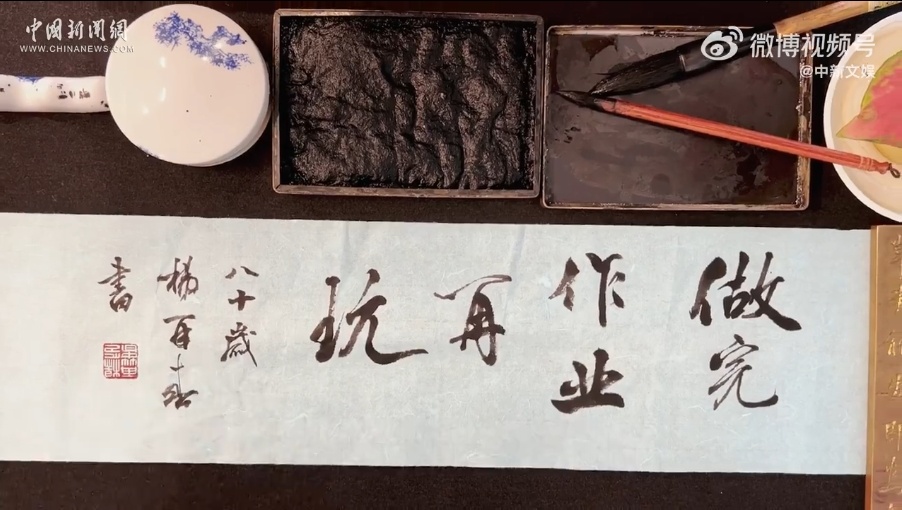 中国新闻網
WWW.CHINANEWS.COM
微博视频号
@中新文娱
做完
作业
再
玩
八十歲
楊再春
書